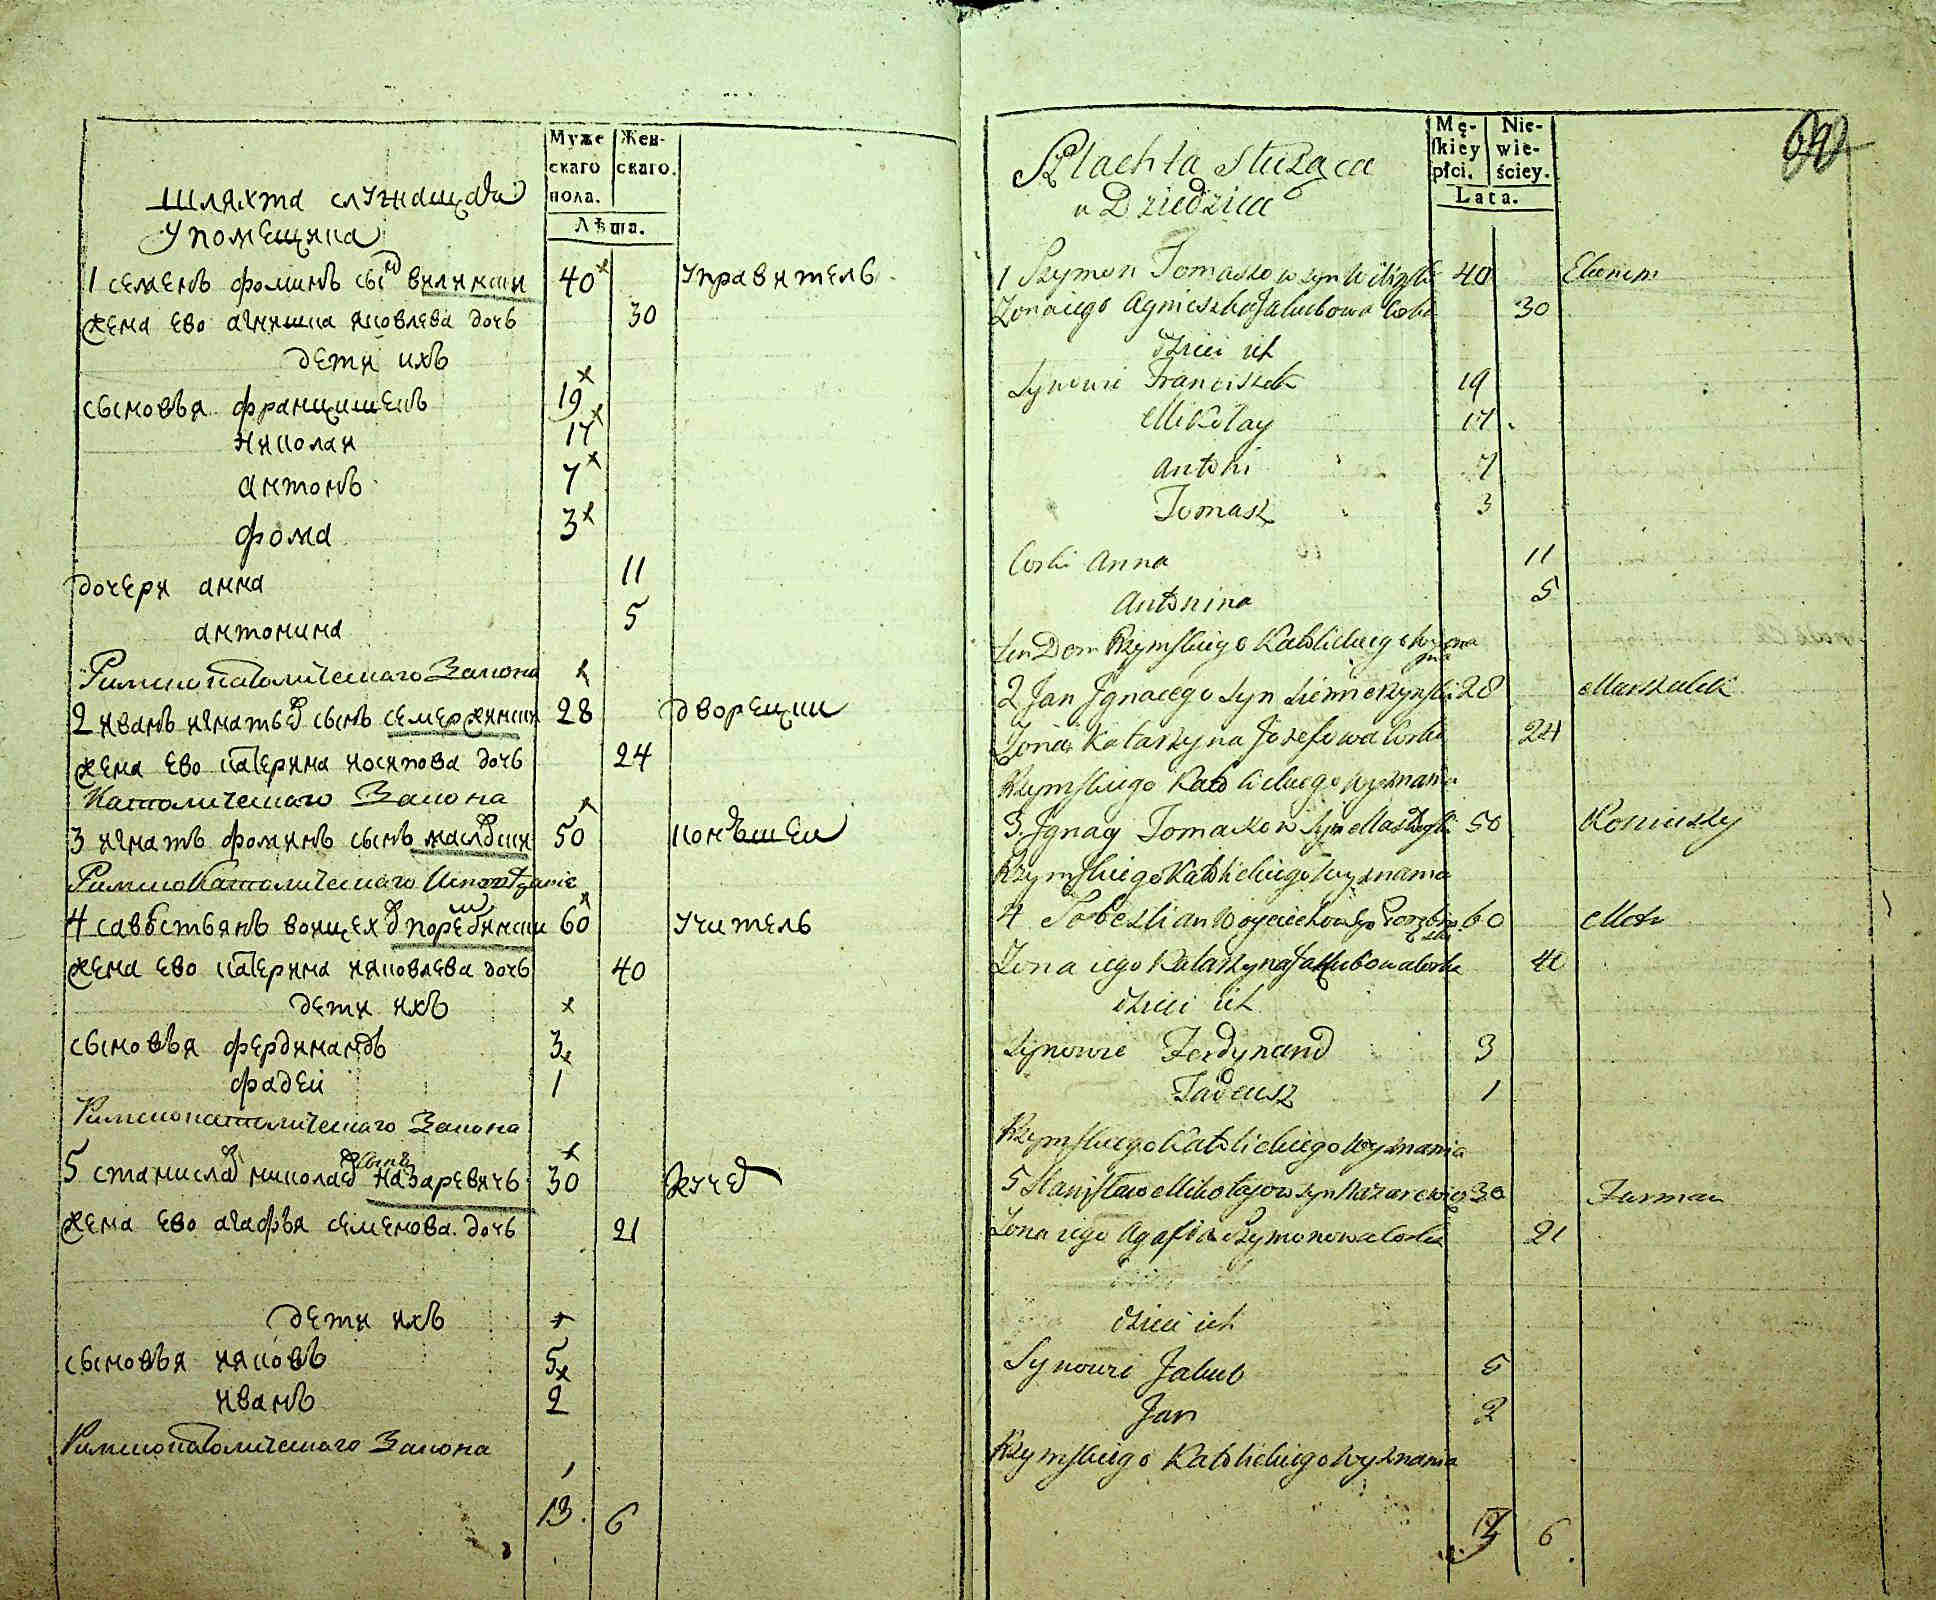 Муже
скаго
пола.
Жен-
скаго.
Лѣта.
шляхта служащая
у помещика
1 семенъ фоминъ сынъ вилински 40 управитель
жена ево агнишка яковлева дочь 30
дети ихъ
сыновья францишекъ 19
николаи 17
антонъ 7
фома 3
дочери анна 11
антонина 5
Римскокатолическаго Закона
2 иванъ игнатьев сынъ семержински 28 дворецки
жена ево катерина иосипова дочь 24
Католическаго Закона
3 игнатъ фоминъ сынъ маслоски 50 конюшеи
Римскокатолическаго
4 савестьянъ воицехов порембински 60 учитель
жена ево катерина яковлева дочь 40
дети ихъ
сыновья фердинандъ 3
фадеи 1
Римскокатолическаго Закона
5 станислав николаев сынъ назаревичъ 30 кучер
жена ево агафья семенова дочь 21
дети ихъ
сыновья яковъ 5
иванъ 2
Римскокатолическаго Закона
13 6
Mę-
ſkiey
płci.
Nie-
wie-
ściey.
Lata.
Szlachta służąca
u Dziedzica
1 Szymon Tomaszow syn Wiliński 40 Ekonom
Zona iego Agnieszka Jakubowa Corka 30
dzieci ich
Synowie Franciszek 19
Mikołay 17
Antoni 7
Tomasz 3
Corki Anna 11
Antonina 5
ten Dom Rzymſkiego Katolickiego wyzna
nia
2 Jan Ignacego syn 28 Marszałek
Zona Katarzyna Jozefowa Corka 24
Rzymſkiego Katolickiego wyznania
3 Ignacy Tomaszow Syn 50 Koniuszy
Rzymſkiego Katolickiego wyznania
4 Sobestian Woyciechow Syn 60 Metr
Zona iego Katarzyna Jakubowa Corka 40
dzieci ich
Synowie Ferdynand 3
Tadeusz 1
Rzymſkiego Katolickiego wyznania
5 Staniſław Mikołajow syn Nazarewicz 30 Furman
Zona iego Agafia Szymonowa Corka 21
dzieci ich
Synowie Jakub 5
Jan 2
Rzymſkiego Katolickiego wyznania
13 6